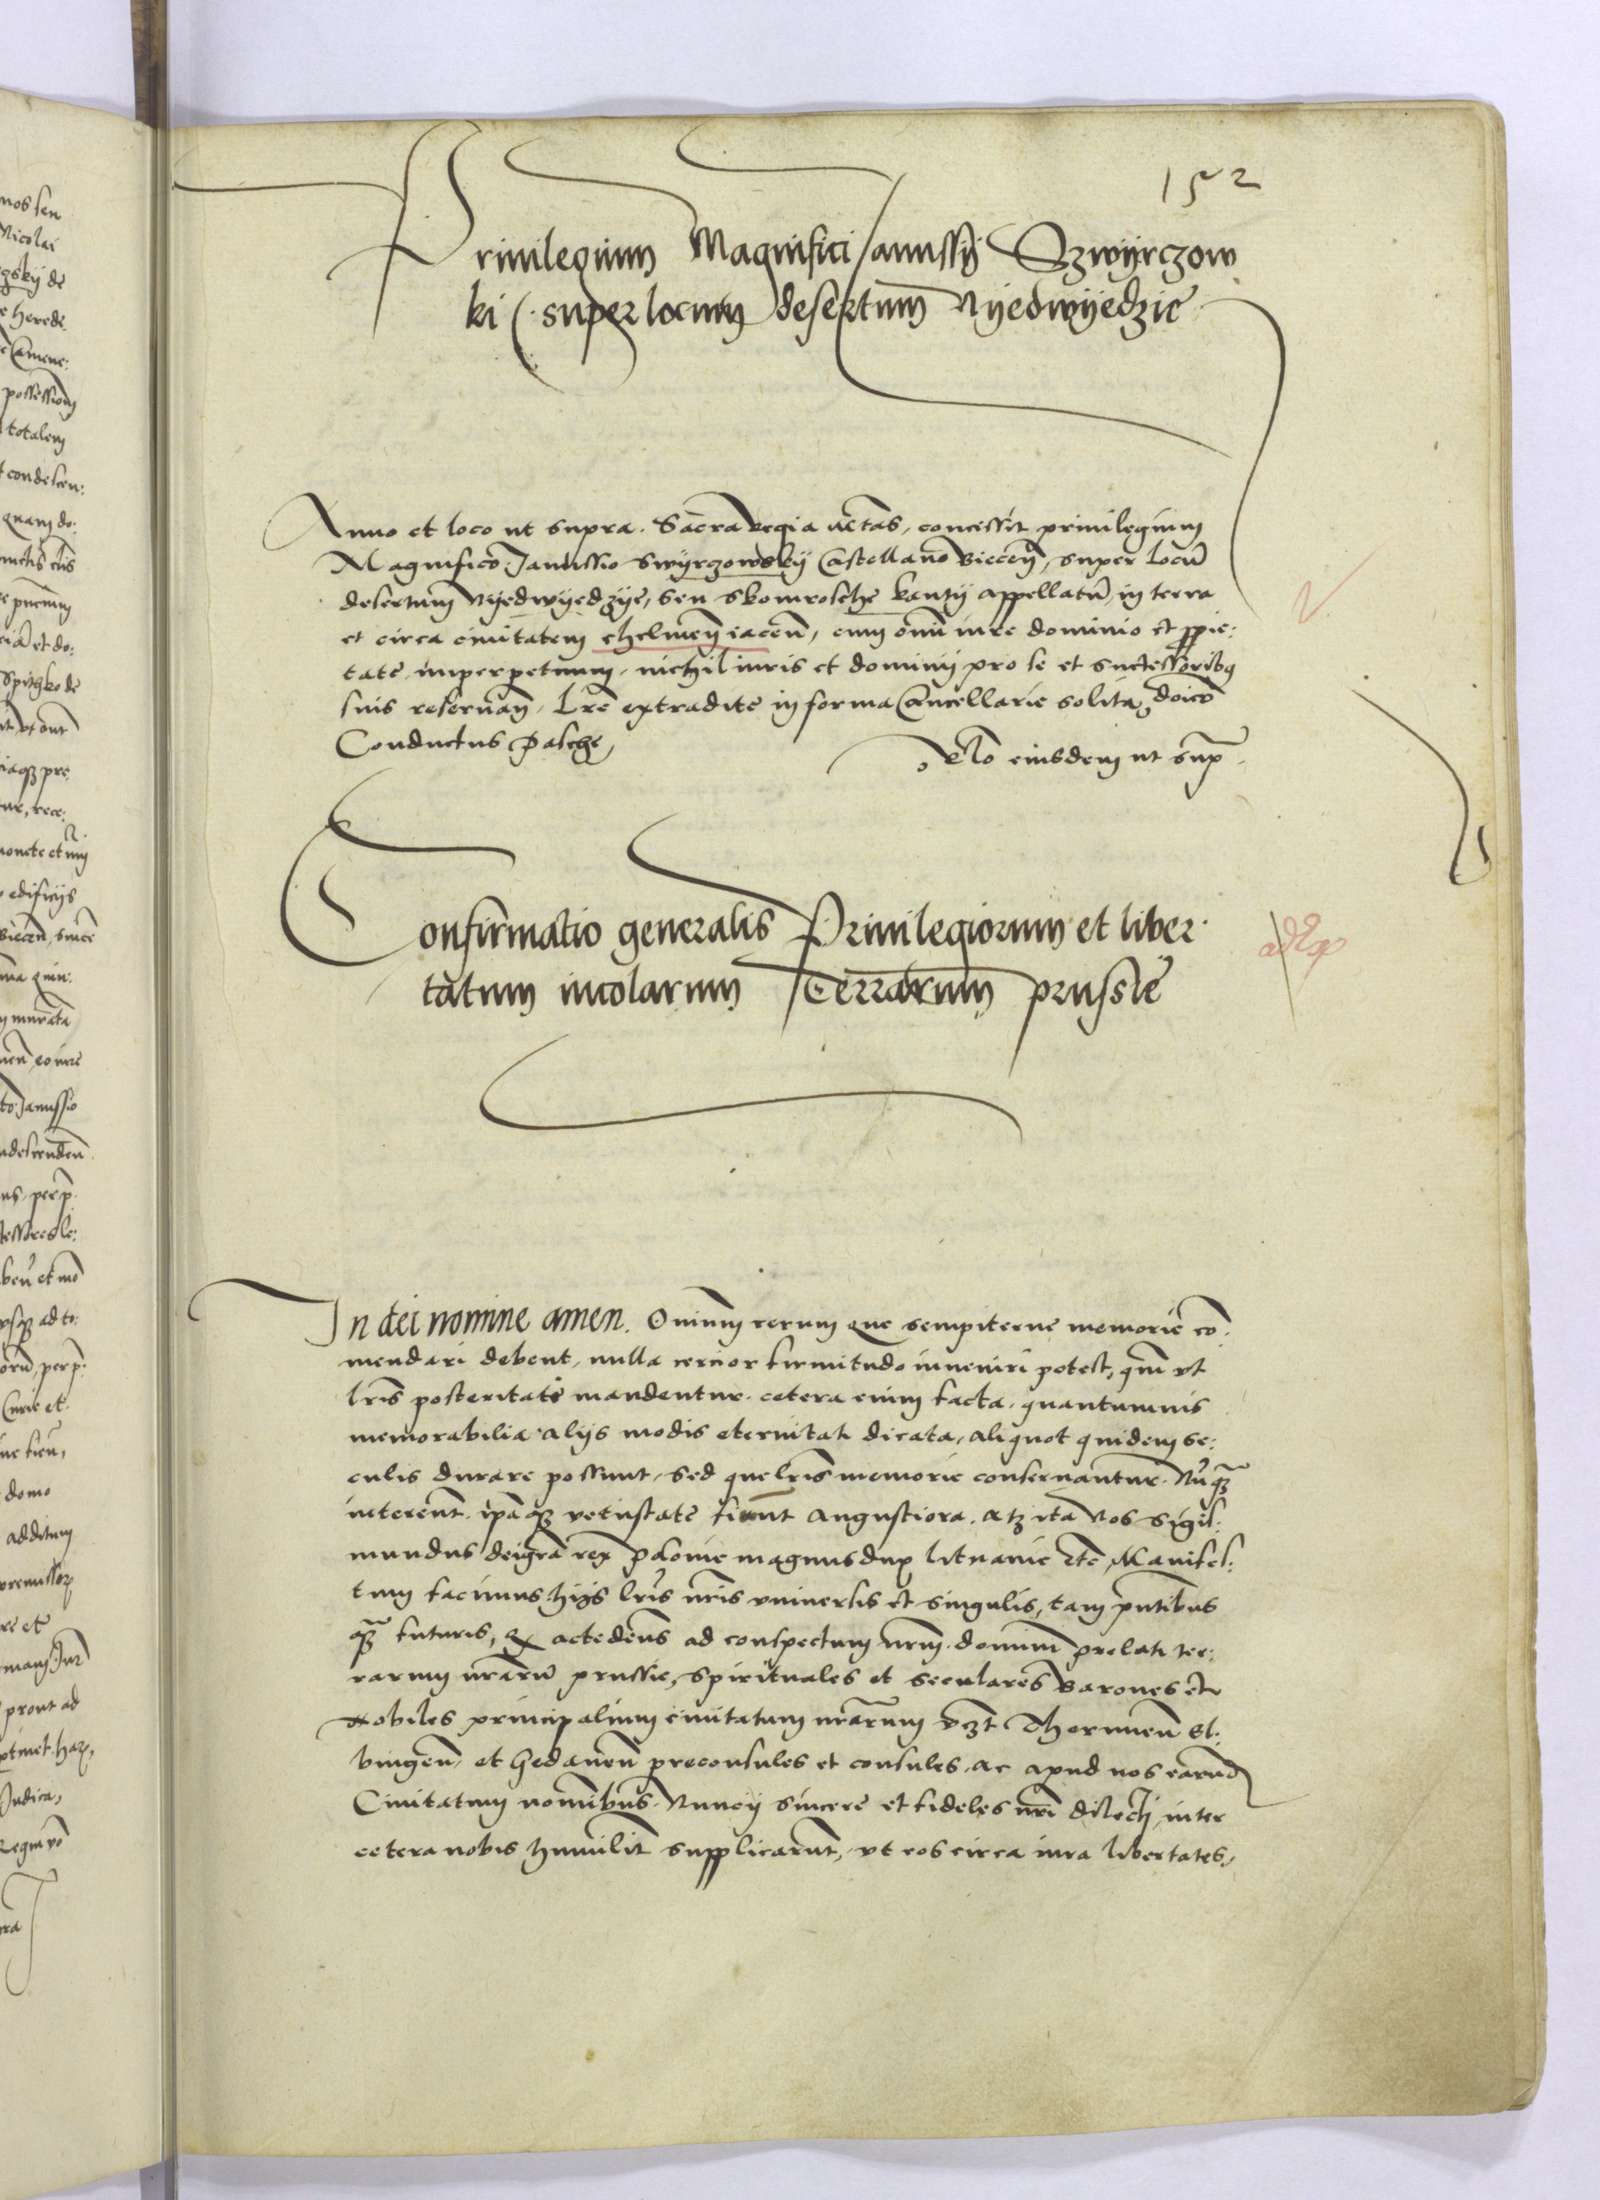 152
Privilegium Magnifici Janussÿ Szwÿrczow
ki super locum desertum Nÿedwÿedzie
Anno et loco ut supra. Sacra regia mtas, concessit privilegium
Magnifico Janussio Swÿrczowskÿ Castellano Biecen, super locu
desertum Nÿedwÿedzÿe, seu Skomrosche kantÿ appellatu, in terra
et circa civitatem chelmen iacen, cum omi iure dominio et ppie:
tate imperpetuum, nichil iuris et dominij pro se et successoribq
suis reservan. Lre extradite in forma Cancellarie solita,
Conductus Pasche,
eiusdem ut sup
Confirmatio generalis Privilegiorum et liber
tatum incolarum Terrarum prussie
In dei nomine amen. Omnium rerum que sempiterne memorie co:
mendari debent, nulla cercior firmitudo inveniri potest, qm ut
lris posteritati mandentur. cetera enim facta, quantumvis
memorabilia alijs modis eternitati dicata, aliquot quidem se:
culis durare possunt, sed que lris memorie conservantur. Nuqz
intereunt. ipaqz vetustate fiunt angustiora. atz ita Nos Sigis:
mundus deigra rex Polonie magnus dux litvanie etc, Manifes:
tum facimus hijs lris nris universis et singulis, tam pntibus
qz futuris, qz accedens ad conspectum nrm. domini prelati ter:
rarum nraru prussie, spirituales et seculares Barones et
Nobiles principalium civitatum nrarum vzt Thorunen El:
bingen, et Gedanen preconsules et consules, ac apud nos earund
Civitatum nomibus. Nuncij sincere et fideles nri dilecti, inter
cetera nobis humilit supplicarunt, ut eos circa iura libertates,